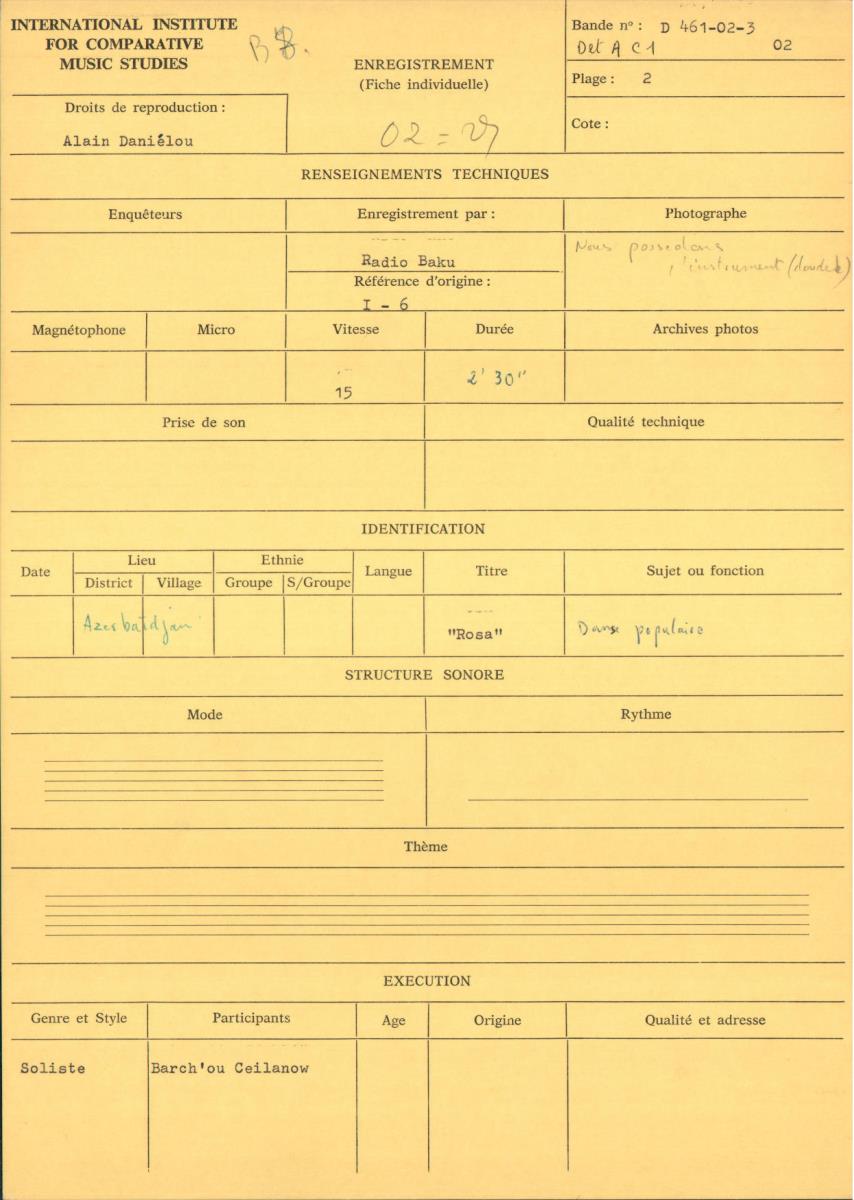 INTERNATIONAL INSTITUTE
FOR COMPARATIVE
MUSIC STUDIES
ENREGISTREMENT
(Fiche individuelle)
Bande nº : D 461-02-3
Det A C1 02
Plage : 2
Cote :
Droits de reproduction :
Alain Daniélou
02 =
RENSEIGNEMENTS TECHNIQUES
Enquêteurs Enregistrement par : Photographe
Radio Baku
Nous possedons
l'instrument (doudek)
Référence d'origine :
I - 6
Magnétophone Micro Vitesse Durée Archives photos
15 2' 30"
Prise de son Qualité technique
IDENTIFICATION
Date Lieu Ethnie Langue Titre Sujet ou fonction
District Village Groupe S/Groupe
Azerbaidjan "Rosa" Danse populaire
STRUCTURE SONORE
Mode Rythme
Thème
EXECUTION
Genre et Style Participants Age Origine Qualité et adresse
Soliste Barch'ou Ceilanow